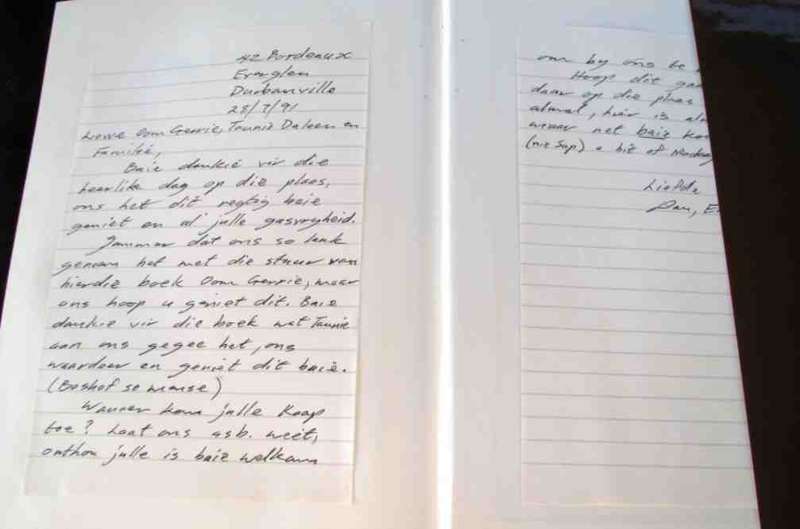 42 Bordeaux
Everglen
Durbanville
28/7/91
Liewe Oom Gerrie, Tannie Daleen en
Familie,
Baie dankie vir die
heerlike dag op die plaas,
ons het dit regtig baie
geniet en al julle gasvryheid.
Jammer dat ons so lank
geneem het met die stuur van
hierdie boek Oom Gerrie, maar
ons hoop u geniet dit. Baie
dankie vir die boek wat Tannie
aan ons gegee het, ons
waardeer en geniet dit baie.
(Boshof se mense)
Wanner kom julle Kaap
toe? Laat ons asb. weet,
onthou julle is baie welkom
om by ons te
Hoop dit gaan
daar op die plaas
almal, hier is al
maar net baie
(nie Sap) e bie of
Liefde